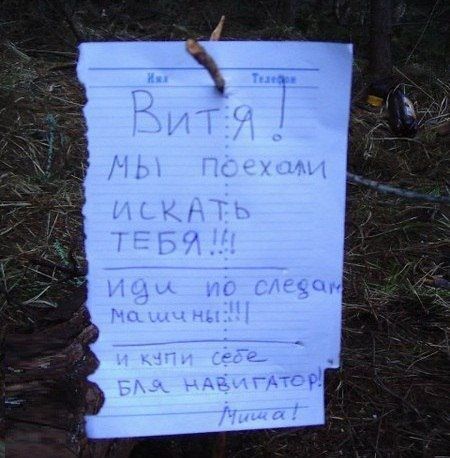 Имя Телефон
Витя!
мы поехали
искать
ТЕБЯ!!!
иди по следам
машины!!!
и купи себе
бля навигатор!
Миша!